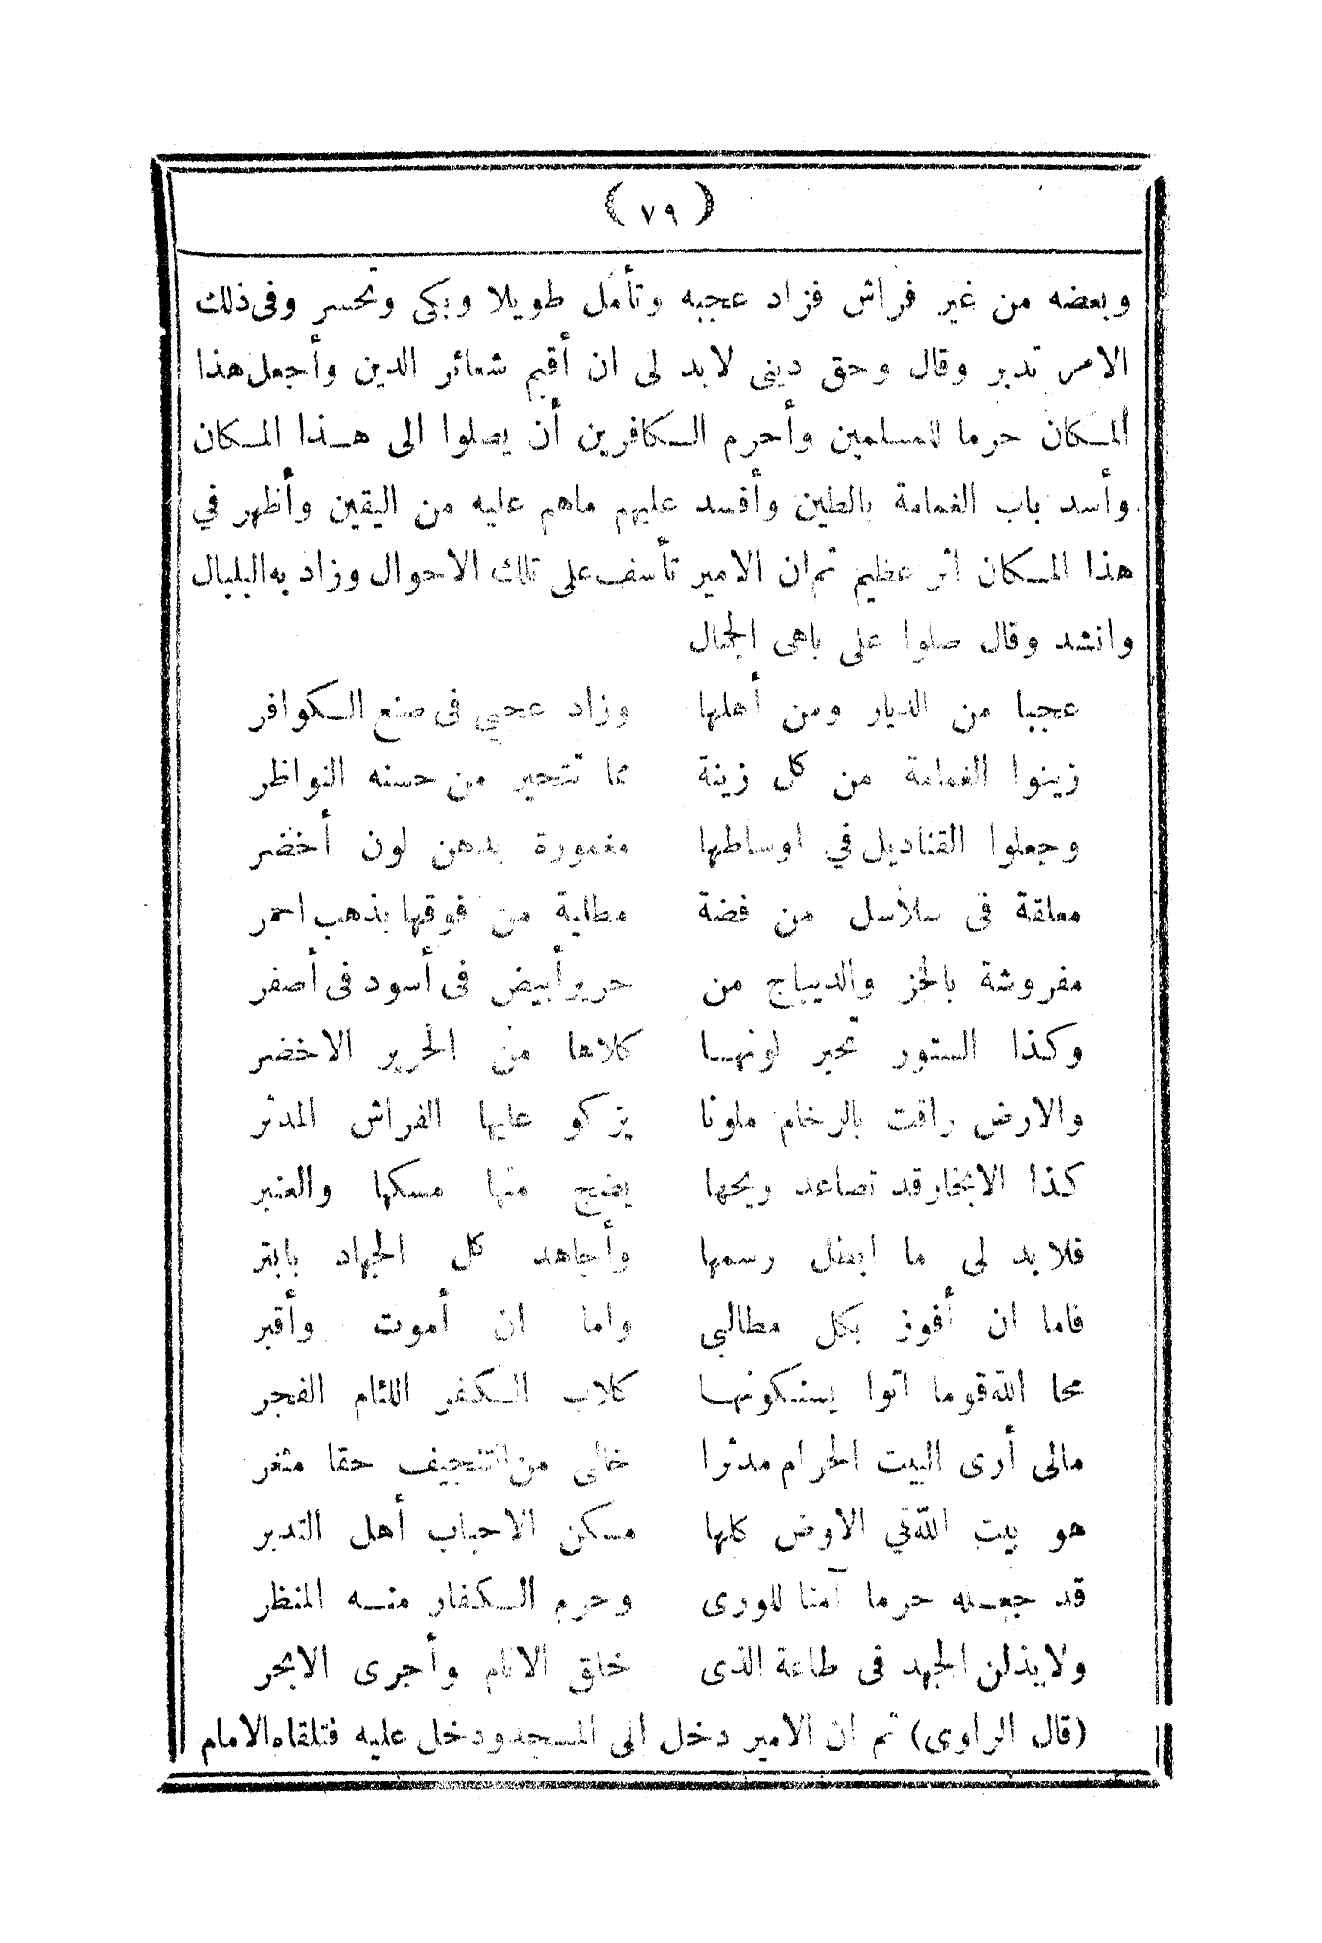 ( ٧٩ )
وبعضه من غير فراش فزاد عجبه وتأمل طويلا وبكى وتحسر وفى ذلك
الامر تدبر وقال وحق دينى لابد لى ان أقيم شعائر الدين وأجعل هذا
المكان حرما للمسلمين وأحرم الكافرين أن يصلوا الى هذا المكان
وأسد باب الغمامة بالطين وأفسد عليهم ماهم عليه من اليقين وأظهر في
هذا المكان أثر عظيم ثم ان الامير تأسف على تلك الاحوال وزاد به البلبال
وانشد وقال صلوا على باهى الجمال
عجبا من الديار ومن أهلها وزاد عجبي فى صنع الكوافر
زينوا الغمامة من كل زينة مما تتحير من حسنه النواظر
وجعلوا القناديل في اوساطها مغمورة بدهن لون أخضر
معلقة فى سلاسل من فضة مطلية من فوقها بذهب احمر
مفروشة بالخز والديباج من حرير أبيض فى أسود فى أصفر
وكذا الستور تحير لونها كلاها من الحرير الاخضر
والارض راقت بالرخام ملونا يزكو عليها الفراش المدثر
كذا الابخار قد تصاعد ريحها يضج منها مسكها والعنبر
فلا بد لى ما ابطل رسمها وأجاهد كل الجهاد بابتر
فاما ان أفوز بكل مطالبي واما ان أموت وأقبر
محا الله قوما اتوا يسكونها كلاب الكفر اللئام الفجر
مالى أرى البيت الحرام مدثرا خالى من التنجيف حقا مثغر
هو بيت الله في الاوض كلها مسكن الاحباب أهل التدبر
قد جعله حرما آمنا للورى وحرم الكفار منه المنظر
ولا بذلن الجهد فى طاعة الذى خلق الانام وأجرى الابحر
(قال الراوى) ثم ان الامير دخل الى المسجد ودخل عليه فتلقاه الامام